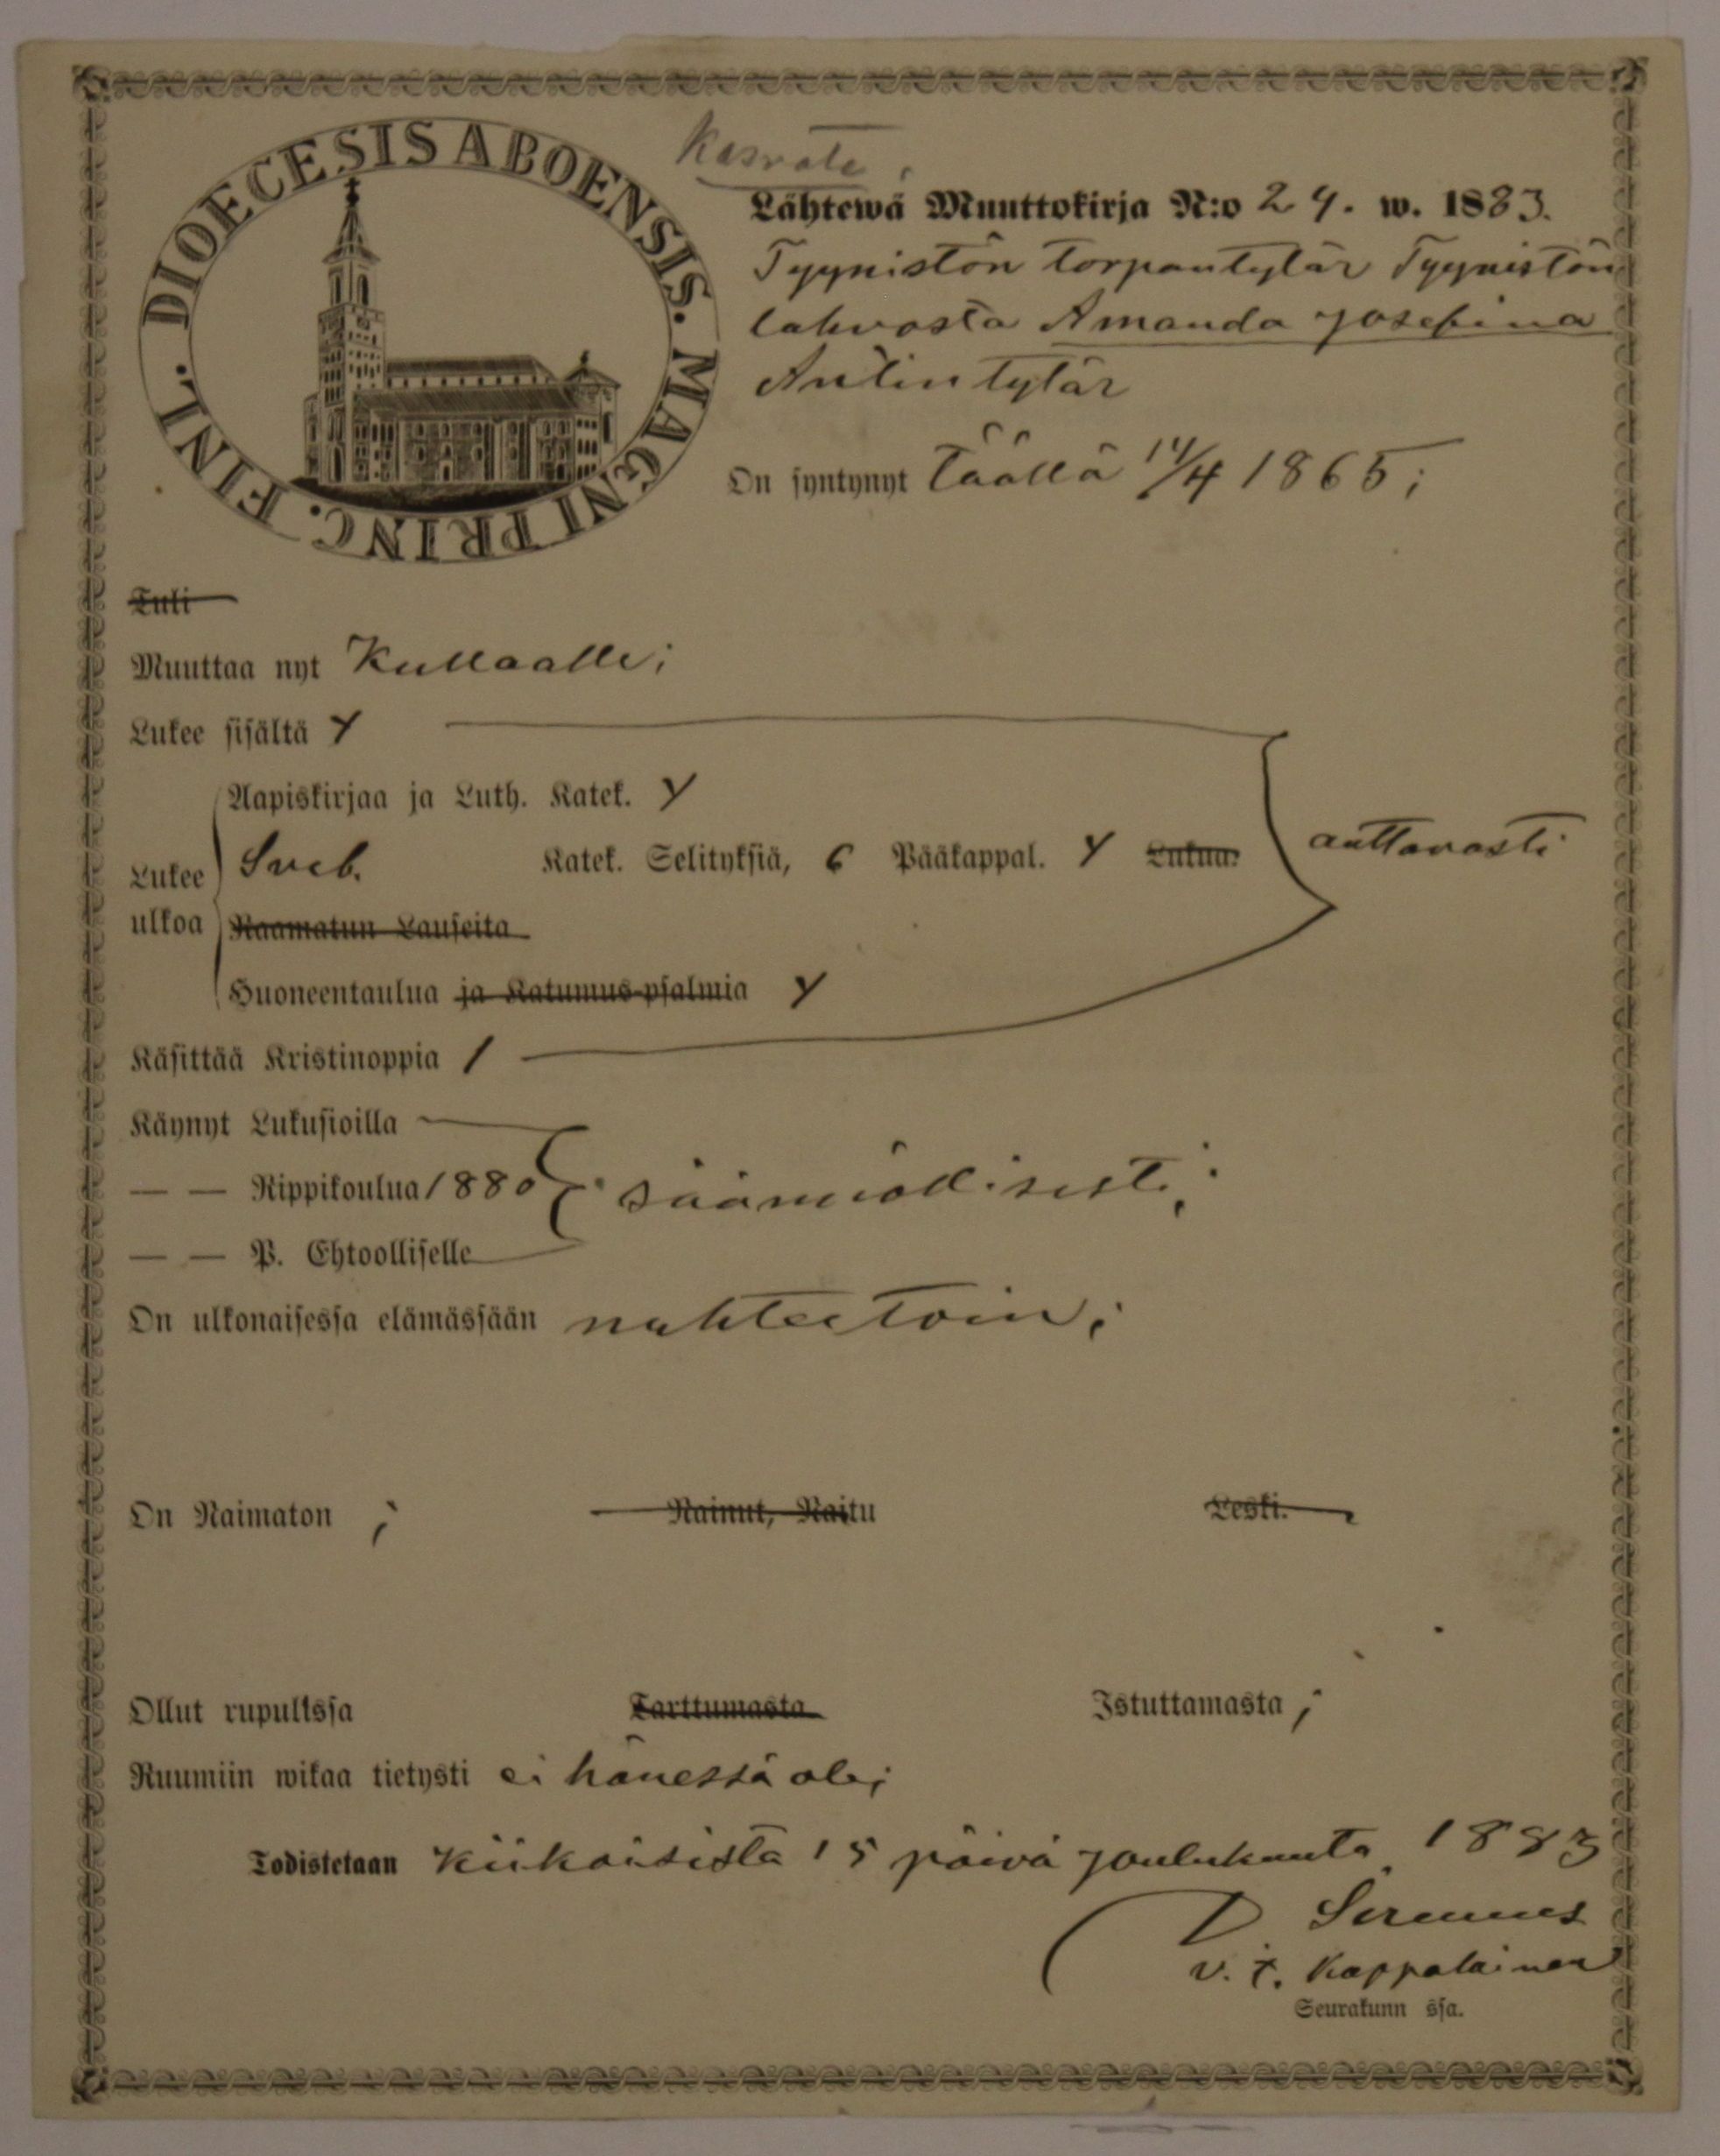 DIOECESIS ABOENSIS. MAGNI PRINC. FINL.
Lähtewä Muuttokirja N:o 24. w. 1883.
Tyynistön torpantytär Tyynistön
lahvosta Amanda Josefina
Antintytär
On syntynyt täällä 14/4 1865;
Tuli
Muuttaa nyt Kullaalle;
Lukee sisältä y
Aapiskirjaa ja Luth. Katek. y
Lukee ulkoa Sveb. Katek. Selityksiä, 6 Pääkappal. y Lukua. auttavasti
Raamatun Lauseita
Huoneentaulua ja Katumus-psalmia y
Käsittää Kristinoppia 1
Käynyt Lukusioilla
— — Rippikoulua 1880 säännöllisesti;
— — P. Ehtoolliselle
On ulkonaisessa elämässään nuhteetoin;
On Naimaton ; Nainut, Naitu Leski.
Ollut rupulissa Tarttumasta Istuttamasta ;
Ruumiin wikaa tietysti ei hänessä ole;
Todistetaan Kiikoisista 15 päivä Joulukuuta 1883
v. t. Kappalainen
Seurakunn ssa.